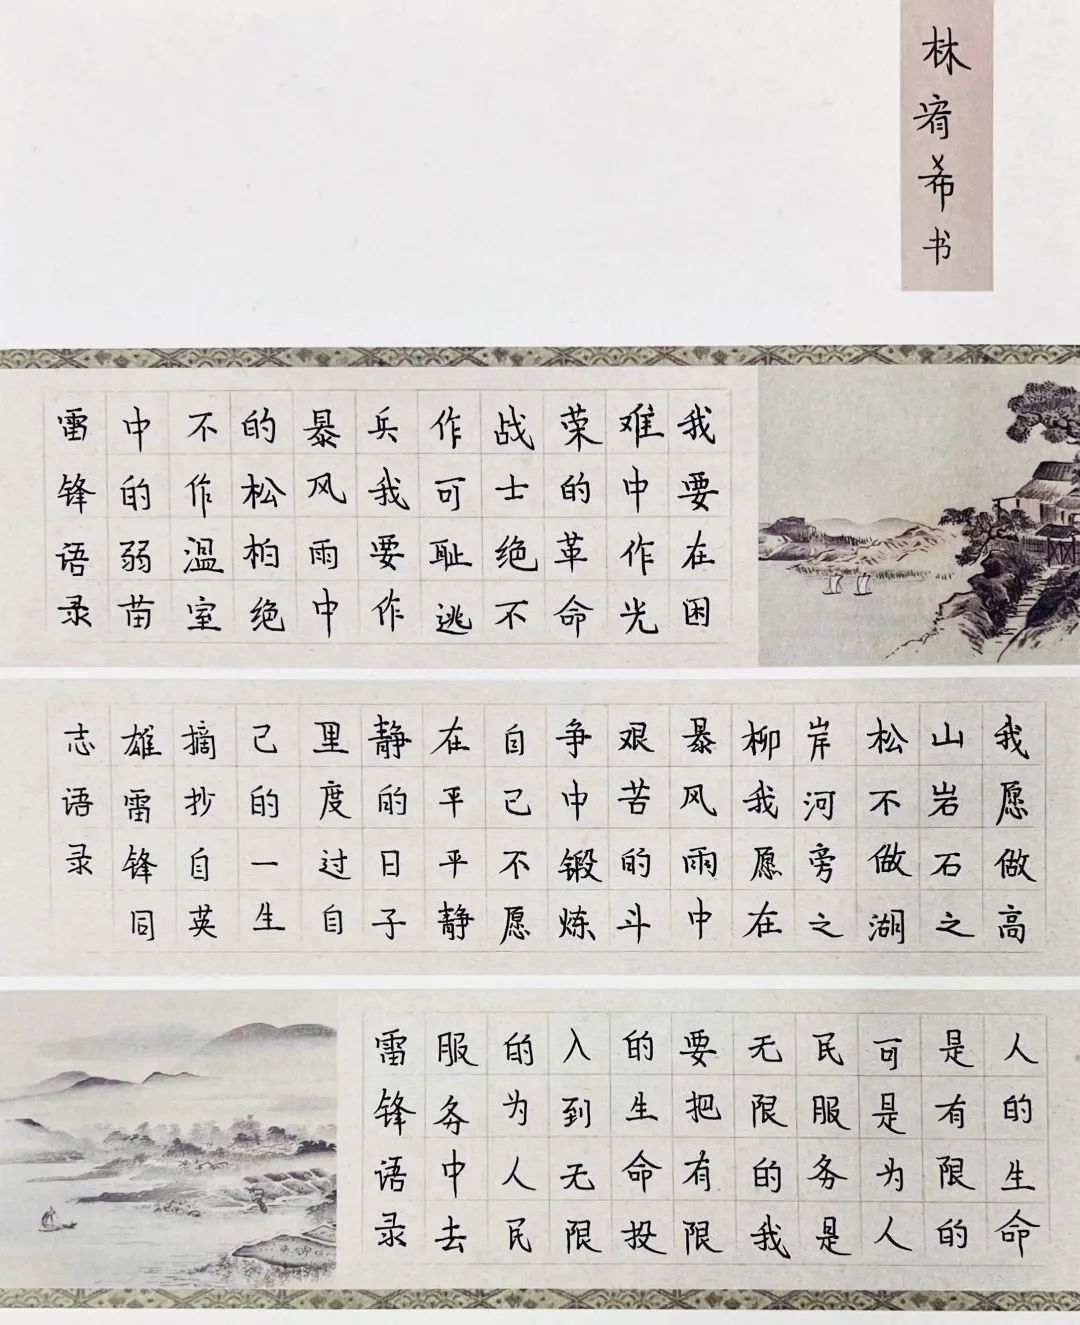 林宥希书
我要在困
难中作光
荣的革命
战士绝不
作可耻逃
兵我要作
暴风雨中
的松柏绝
不作温室
中的弱苗
雷锋语录
我愿做高
山岩石之
松不做湖
岸河旁之
柳我愿在
暴风雨中
艰苦的斗
争中锻炼
自己不愿
在平平静
静的日子
里度过自
己的一生
摘抄自英
雄雷锋同
志语录
人的生命
是有限的
可是为人
民服务是
无限的我
要把有限
的生命投
入到无限
的为人民
服务中去
雷锋语录